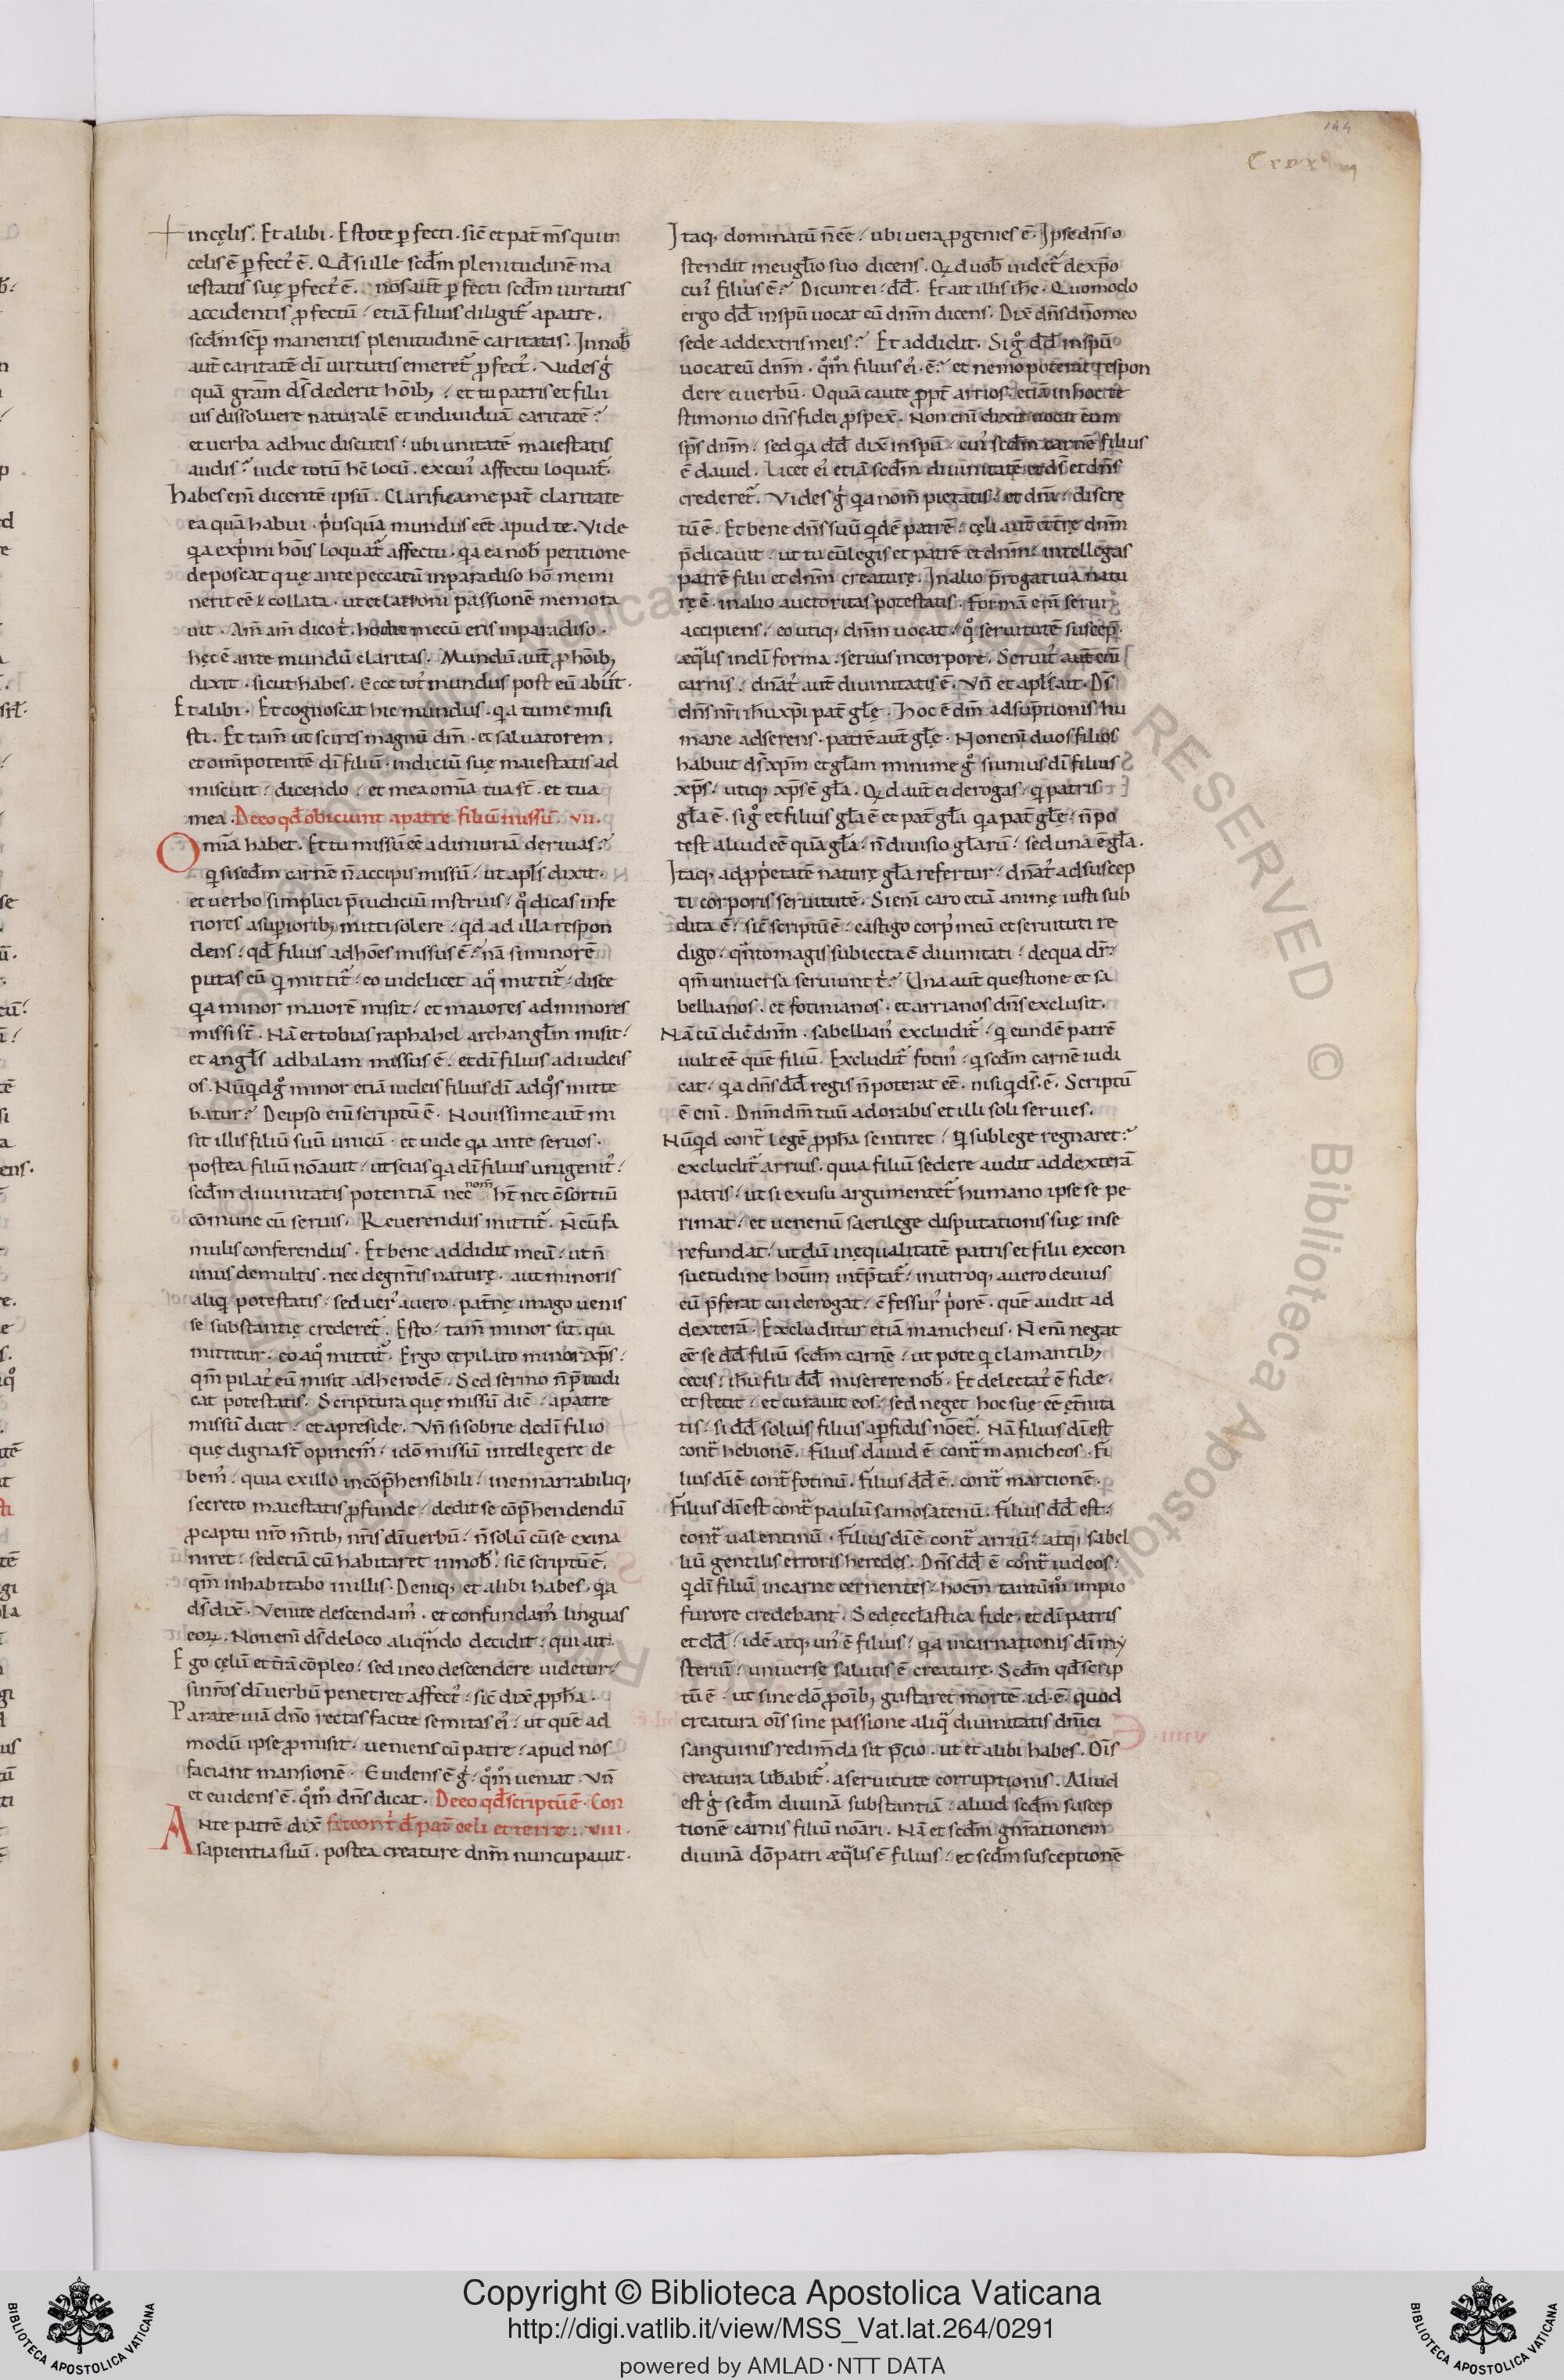 144
incęlis. Et alibi. Estote ꝑfecti. sic̄ et pat̄ ur̄s qui in
celis ē ꝑfect᷒ ē. Qd̄ sil ille scd̄m plenitudinē ma
iestatis suę ꝑfect᷒ ē. nos aut̄ ꝑfecti scd̄m uirtutis
accidentis ꝓfectū / etiā filius diligit᷒ apatre.
scd̄m sēꝑ manentis plenitudinē caritatis. In nob̄
aut̄ caritatē dī uirtutis emeret᷒ ꝓfect᷒. Vides gͥ
quā gr̄am dš dederit hōib; / et tu patris et filii
uis dissoluere naturalē et indiuiduā caritatē?
et uerba adhuc discutis / ubi unitatē maiestatis
audis? uide totū hc̄ locū. ex cui᷒ affectu loquat᷒.
habes enī dicentē ipsū. Clarifica me pat̄ claritate
ea quā habui. pͥusquā mundus eēt apud te. Vide
qa exp̄mi hōis loquat᷒ affectu. qa ea nob̄ petitione
deposcat quę ante peccatū inparadiso hō memi
nerit eē collata. ut et latroni passionē memora
uit. Am̄ am̄ dico tͥ. hodie mecū eris inparadiso.
hęc ē ante mundū claritas. Mundū aut̄ ꝓ hōib;
dixit. sicut habes. Ecce tot᷒ mundus post eū abiit.
Et alibi. Et cognoscat hic mundus. qa tu me misi
sti. Et tam̄ ut scires magnū dm̄. et saluatorem.
et omīpotentē dī filiū. indiciū suę maiestatis ad
miscuit / dicendo / et mea omīa tua sr̄t. et tua
mea. De eo qd̄ obiciunt apatre filiū missū. vii.
Omīa habet. Et tu missū eē ad iniuriā deriuas?
qͥ si scd̄m carnē n̄ accipis missū / ut apl̄s dixit.
et uerbo simplici p̄iudiciū instruis / qͦ dicas infe
riores asuꝑiorib; mitti solere / qͥd ad illa respon
dens / qd̄ filius ad hōes missus ē? nā si minorē
putas eū qͥ mittit᷒ / eo uidelicet aqͦ mittit᷒ / disce
qa minor maiorē misit / et maiores ad minores
missi sr̄t. Nā et tobias raphahel archangl̄m misit /
et angl̄s ad balam missus ē. et dī filius ad iudeis
os. Nūqͥdgͦ minor etiā iudeis filius dī ad qͦs mitte
batur? De ipso enī scriptū ē. Nouissime aut̄ mi
sit illis filiū suū unicū. et uide qa ante seruos.
postea filiū nōauit / ut scias qa dī filius unigenit᷒ /
scd̄m diuinitatis potentiā nec nom̄ ht̄ nec c̄sortiū
cōmune cū seruis. Reuerendus mittit᷒. N̄ cū fa
mulis conferendus. Et bene addidit meū / ut n̄
unus de multis. nec degnr̄is naturę. aut minoris
aliqͥ potestatis / sed uer᷒ a uero. pat̄nę imago uenis
se substantię crederet᷒. Esto / tam̄ minor sit. qui
mittitur. eo aqͦ mittit᷒. Ergo et pilato minor xp̄s /
qm̄ pilat᷒ eū misit ad herodē. Sed sermo n̄ p̄iudi
cat potestatis. Scriptura quę missū dic̄ / apatre
missū dicit / et apreside. Vn̄ si sobrie de dī filio
quę digna sr̄t opinem᷒ / idō missū intellegere de
bem᷒ / quia ex illo incōp̄hensibili / inennarrabiliq;
secreto maiestatis ꝓfunde / dedit se cōp̄hendendū
ꝓ captu nr̄o m̄tib; nr̄is dī uerbū / n̄ solū cū se exina
niret / sed etiā cū habitaret innob̄ / sic̄ scriptū ē.
qm̄ inhabitabo in illis. Deniq; et alibi habes. qa
dš dix̄. Venite descendam᷒. et confundam᷒ linguas
eoꝝ. Non enī dš de loco aliqͣndo decidit / qui ait.
Ego cęlū et t̄rā cōpleo / sed in eo descendere uidetur /
si nr̄os dī uerbū penetret affect᷒ / sic̄ dix̄ ꝓph̄a.
Parate uiā dn̄o rectas facite semitas ei᷒ / ut quē ad
modū ipse ꝓmisit / ueniens cū patre / apud nos
faciant mansionē. Euidens ē gͥ / qͦm̄ ueniat. Vn̄
et euidens ē. qͦm̄ dn̄s dicat. De eo qd̄ scriptū ē. Con
Ante patrē dix̄ fiteort᷒ d̄ pat̄ celi et terre. viii.
sapientia suū. postea creature dnm̄ nuncupauit.
Itaq; dominatū n̄ eē / ubi uera ꝓgenies ē. Ipse dn̄s o
stendit in euglio suo dicens. Qͥd uob̄ uidet᷒ de xp̄o
cui᷒ filius ē? Dicunt ei / dd̄. Et ait illis ih̄c. Quomodo
ergo dd̄ in spū uocat eū dnm̄ dicens. Dix̄ dn̄s dn̄o meo
sede ad dextris meis? Et addidit. Si gͦ dd̄ in spū
uocat eū dnm̄. qͦm̄ filius ei᷒ ē? et nemo poterat respon
dere ei uerbū. O quā caute ꝓpt̄ arrios. etiā in hoc te
stimonio dn̄s fidei ꝓspex̄. Non enī dixit uocat eum
sp̄s dnm̄ / sed qa dd̄ dix̄ in spū / cui᷒ scd̄m carnē filius
ē dauid. Licet ei᷒ etiā scd̄m diuinitatē et dš et dn̄s
crederet᷒. Vides gͥ qa nom̄ pietatis / et dnī / discre
tū ē. Et bene dn̄s suū qͥdē patrē / cęli aut̄ et t̄rę dnm̄
p̄dicauit / ut tu cū legis et patrē et dnm̄ / intellegas
patrē filii et dnm̄ creaturę. In alio p̄rogatiua natu
rę ē. in alio auctoritas potestatis. Formā enī serui
accipiens / eo utiq; dnm̄ uocat / qͦ seruitutē susceꝑ.
æqͣlis in dī forma. seruus in corpore. Seruit᷒ aut̄ enī
carnis / dn̄at᷒ aut̄ diuinitatis ē. Vn̄ et apl̄s ait. Dš
dn̄i nr̄i ih̄u xp̄i pat̄ gl̄ę. Hoc ē dm̄ adsūptionis hu
mane adserens. patrē aut̄ gl̄ę. Non enī duos filios
habuit dš xpm̄ et gl̄am minime gͦ si unius dī filius
xp̄s / utiq; xp̄s ē gl̄a. Qͥd aut̄ ei derogas / qͥ patris
gl̄a ē. si gͦ et filius gl̄a ē et pat̄ gl̄a qa pat̄ gl̄ę / n̄ po
test aliud eē quā gl̄a / n̄ diuisio gl̄arū / sed una ē gl̄a.
Itaq; ad ꝓp̄etatē naturę gl̄a refertur / dn̄at᷒ ad suscep
ti corporis seruitutē. Si enī caro etiā animę iusti sub
dita ē / sic̄ scriptū ē / castigo corp᷒ meū et seruituti re
digo / qͣnto magis subiecta ē diuinitati / de qua dr̄ /
qm̄ uniuersa seruiunt tͥ? Vna aut̄ questione et sa
bellianos. et fotinianos. et arrianos dn̄s exclusit.
Nā cū dic̄ dnm̄. sabellian᷒ excludit᷒ / qͥ eundē patrē
uult eē quē filiū. Excludit᷒ fotin᷒ / qͥ scd̄m carnē iudi
cat. qa dn̄s dd̄ regis n̄ poterat eē. nisi qͥ dš ē. Scriptū
ē enī. Dnm̄ dm̄ tuū adorabis et illi soli seruies.
Nūqͥd cont̄ legē ꝓph̄a sentiret / qͥ sub lege regnaret?
excludit᷒ arrius. quia filiū sedere audit ad dexterā
patris / ut si ex usu argumentet᷒ humano ipse se pe
rimat / et uenenū sacrilegę disputationis suę in se
refundat / ut dū inequalitatē patris et filii ex con
suetudine hoūm int̄p̄tat᷒ / in utroq; a uero deuius
eū p̄ferat cui derogat / c̄fessur᷒ pͥorē. quē audit ad
dexterā. Excluditur etiā manicheus. N̄ enī negat
eē se dd̄ filiū scd̄m carnē / ut pote qͥ clamantib;
cecis / ih̄u fili dd̄ miserere nob̄. Et delectat᷒ ē fide.
et stetit / et curauit eos / sed neget hoc suę eē et̄nita
tis / si dd̄ solius filius aꝑfidis nōet᷒. Nā filius dī est
cont̄ hebionē. Filius dauid ē cont̄ manicheos. Fi
lius dī ē cont̄ fotinū. Filius dd̄ ē. cont̄ marcionē.
Filius dī est cont̄ paulū samosatenū. Filius dd̄ est /
cont̄ ualentinū. Filius dī ē cont̄ arriū / atq; sabel
liū gentilis erroris heredes. Dn̄s dd̄ ē cont̄ iudeos /
qͥ dī filiū in carne cernentes / hoēm tantūm᷒ impio
furore credebant. Sed eccl̄astica fide. et dī patris
et dd̄ / idē atq; un᷒ ē filius / qa incarnationis dī my
steriū / uniuersę salutis ē creaturę. Scd̄m qd̄ scrip
tū ē / ut sine dō ꝓ oīb; gustaret mortē. id ē. quod
creatura oīs sine passione aliqͣ diuinitatis dnīci
sanguinis redim̄da sit p̄cio. ut et alibi habes. Oīs
creatura lib̄abit᷒. a seruitute corruptionis. Aliud
est gͥ scd̄m diuinā substantiā / aliud scd̄m suscep
tionē carnis filiū nōari. Nā et scd̄m gnr̄ationem
diuinā dō patri æqͣlis ē filius / et scd̄m susceptionē
Copyright © Biblioteca Apostolica Vaticana
http://digi.vatlib.it/view/MSS_Vat.lat.264/0291
powered by AMLAD·NTT DATA
BIBLIOTECA APOSTOLICA VATICANA
BIBLIOTECA APOSTOLICA VATICANA